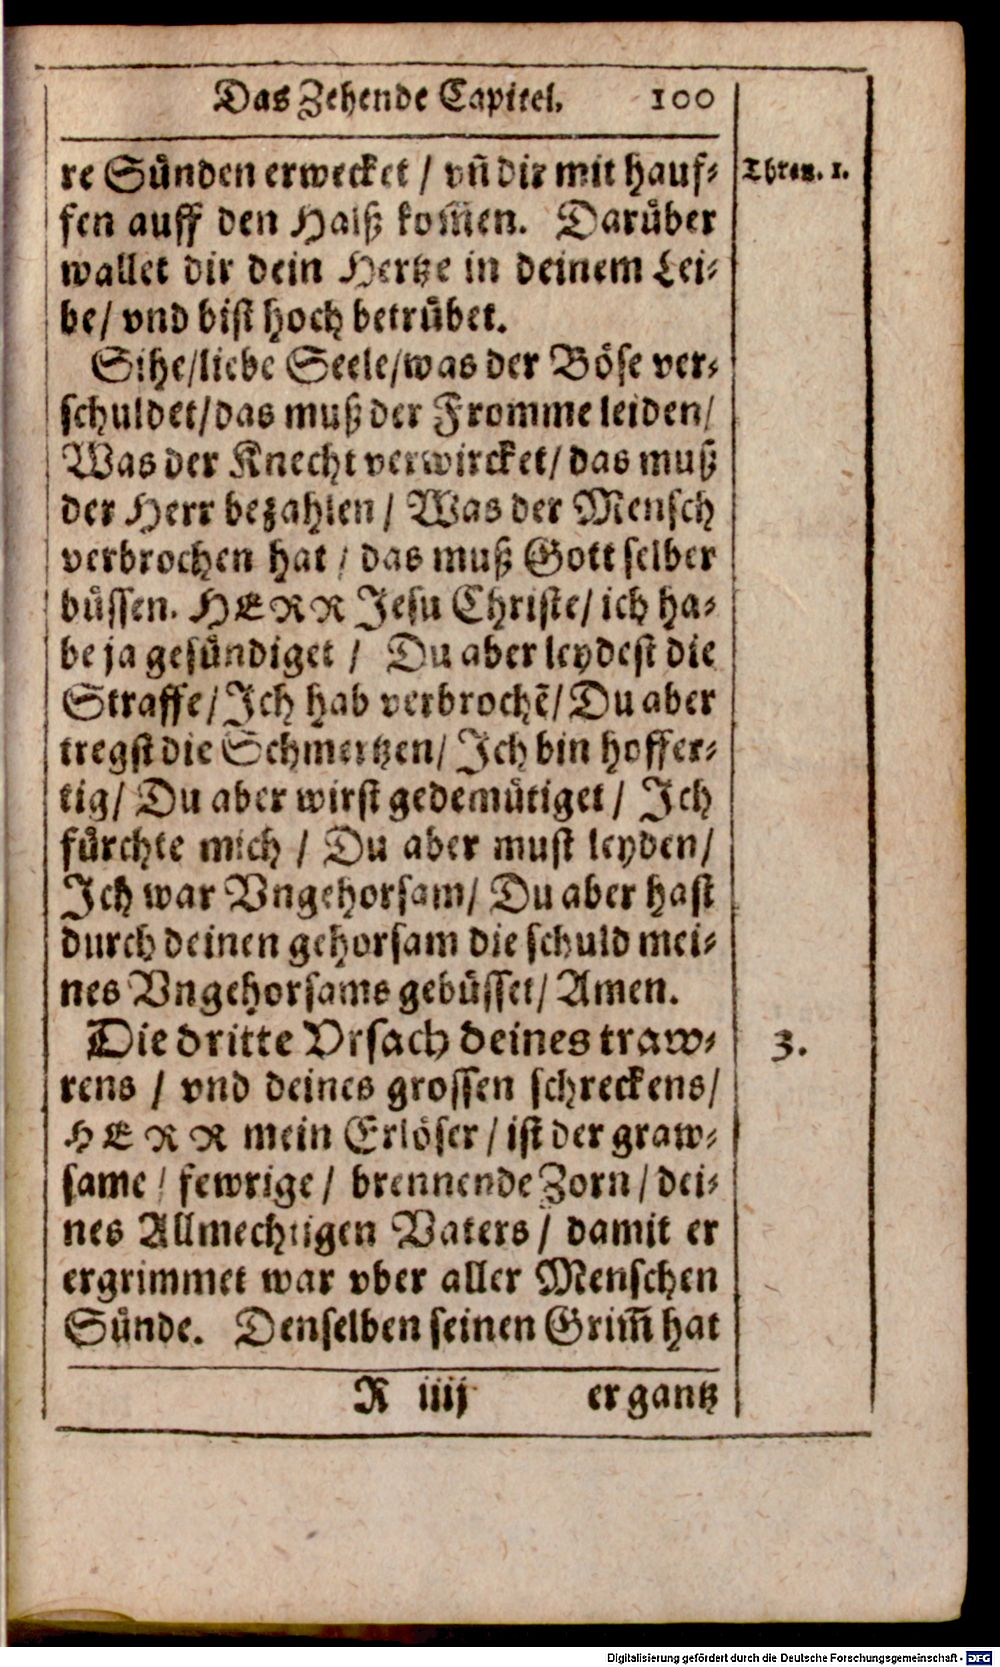 Das Zehende Capitel. 100
re Sünden erwecket / vn̄ dir mit hauf- Thren. 1.
fen auff den Halß kom̄en. Darüber
wallet dir dein Hertze in deinem Lei-
be/ vnd bist hoch betrübet.
Sihe/liebe Seele/was der Böse ver-
schuldet/das muß der Fromme leiden/
Was der Knecht verwircket/ das muß
der Herr bezahlen / Was der Mensch
verbrochen hat / das muß Gott selber
büssen. HERR Jesu Christe/ ich ha-
be ja gesündiget / Du aber leydest die
Straffe/ Ich hab verbrochē/ Du aber
tregst die Schmertzen/ Ich bin hoffer-
tig/ Du aber wirst gedemütiget / Ich
fürchte mich / Du aber must leyden/
Ich war Vngehorsam/ Du aber hast
durch deinen gehorsam die schuld mei-
nes Vngehorsams gebüsset/ Amen.
Die dritte Vrsach deines traw- 3.
rens / vnd deines grossen schreckens/
HERR mein Erlöser / ist der graw-
same / fewrige / brennende Zorn / dei-
nes Allmechtigen Vaters / damit er
ergrimmet war vber aller Menschen
Sünde. Denselben seinen Grim̄ hat
R iiij er gantz
Digitalisierung gefördert durch die Deutsche Forschungsgemeinschaft - DFG